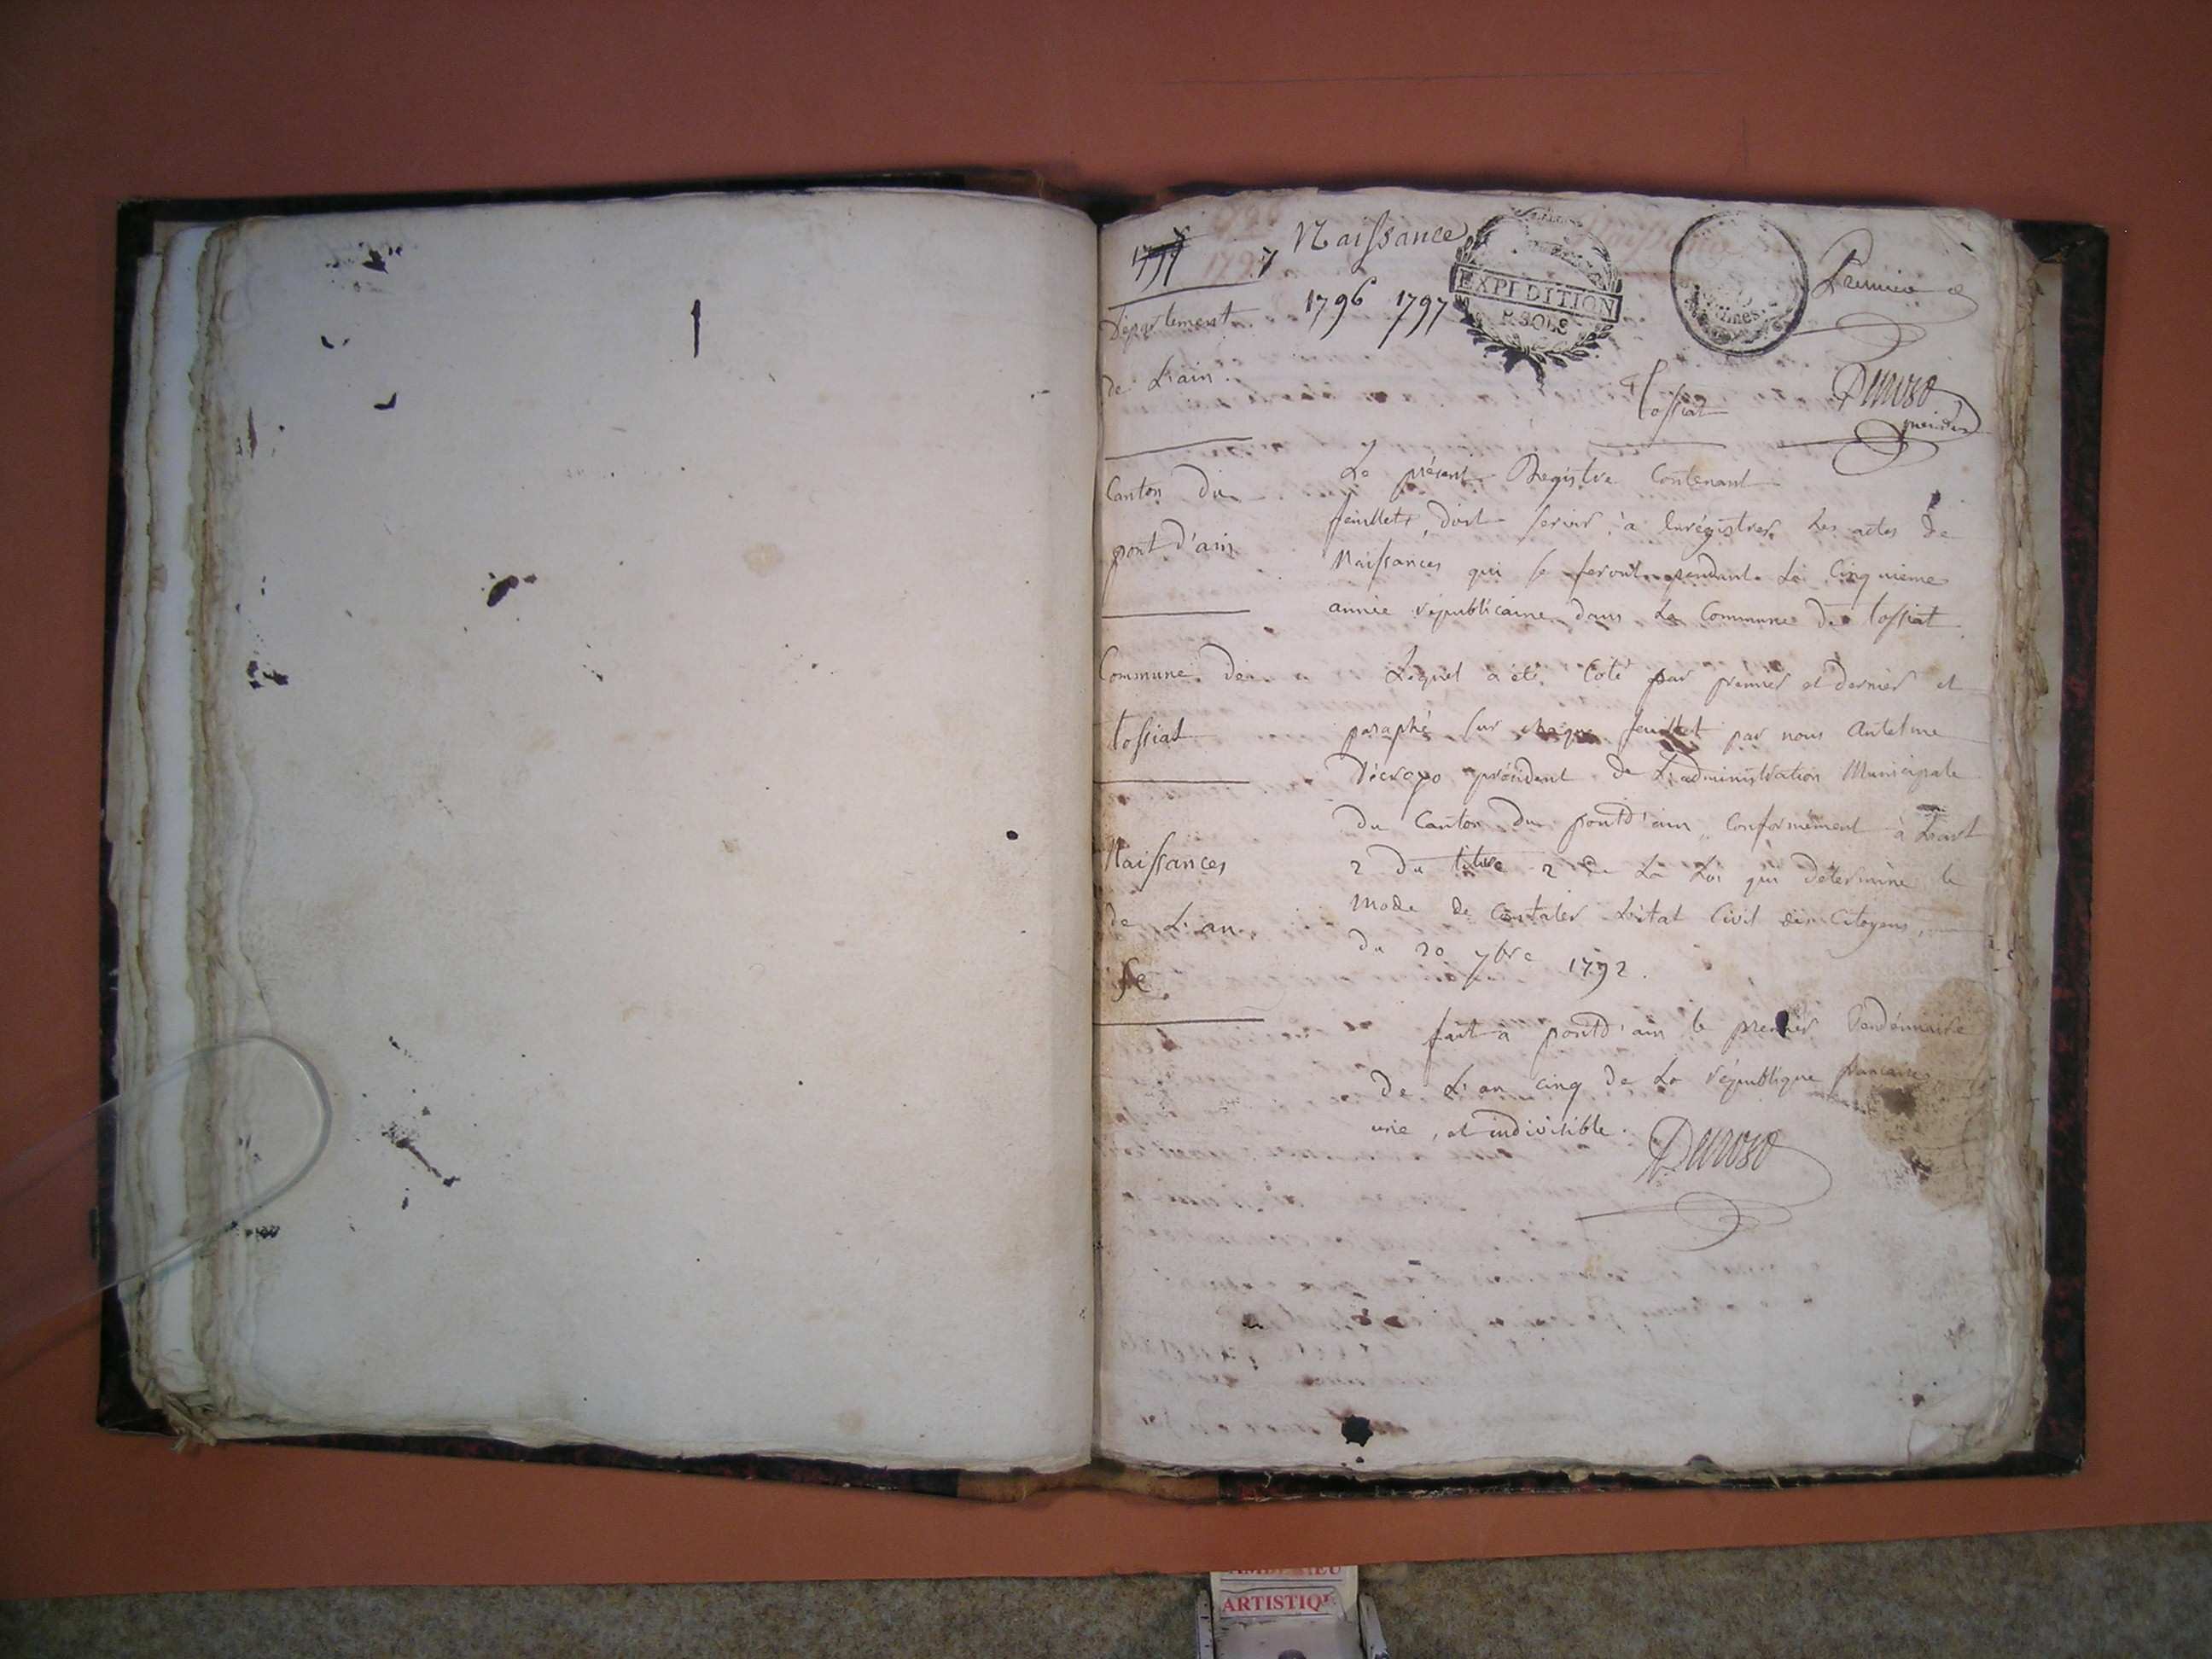 Naissance
1796 1797
EXPEDITION
Premier
Tossiat
Département
de L'ain.
Canton du
pont d'ain
Commune de
tossiat
Naissances
de L'an
5e
Le présent Registre Contenant
feuillets, doit servir à Enrégistrer Les actes de
Naissances qui se feront pendant La Cinquieme
année républicaine dans La Commune de tossiat
Lequel a été Coté par premier et dernier et
paraphé sur chaque feuillet par nous Antelme
président de L'administration Municipale
du Canton du pontd'ain, Conformément à L'art
2 du titre 2 de La Loi qui détermine le
mode de Constater L'état Civil des Citoyens,
du 20 7bre 1792.
fait à pontd'ain le premier Vendémiaire
de L'an cinq de La république francaise
une, et indivisible.
ARTISTIQUE